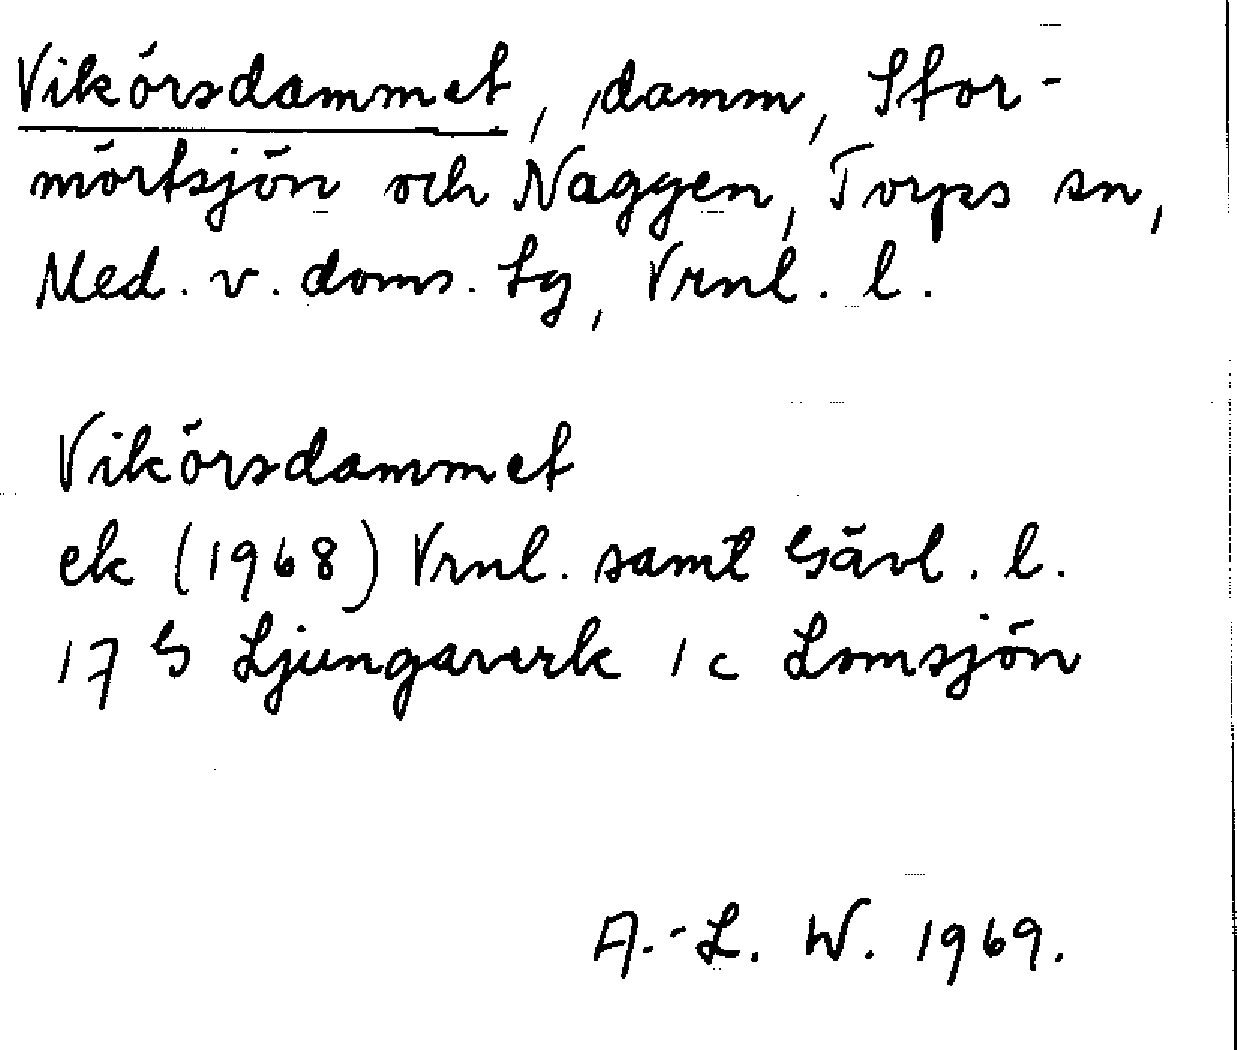 Vikörsdammet, damm, Stor-
mörtsjön och Naggen, Torps sn,
Med. v. doms. tg, Vrnl. l.
Vikörsdammet
ek (1968) Vrnl. samt Gävl. l.
17 G Ljungaverk 1 c Lomsjön
A.-L. W. 1969.